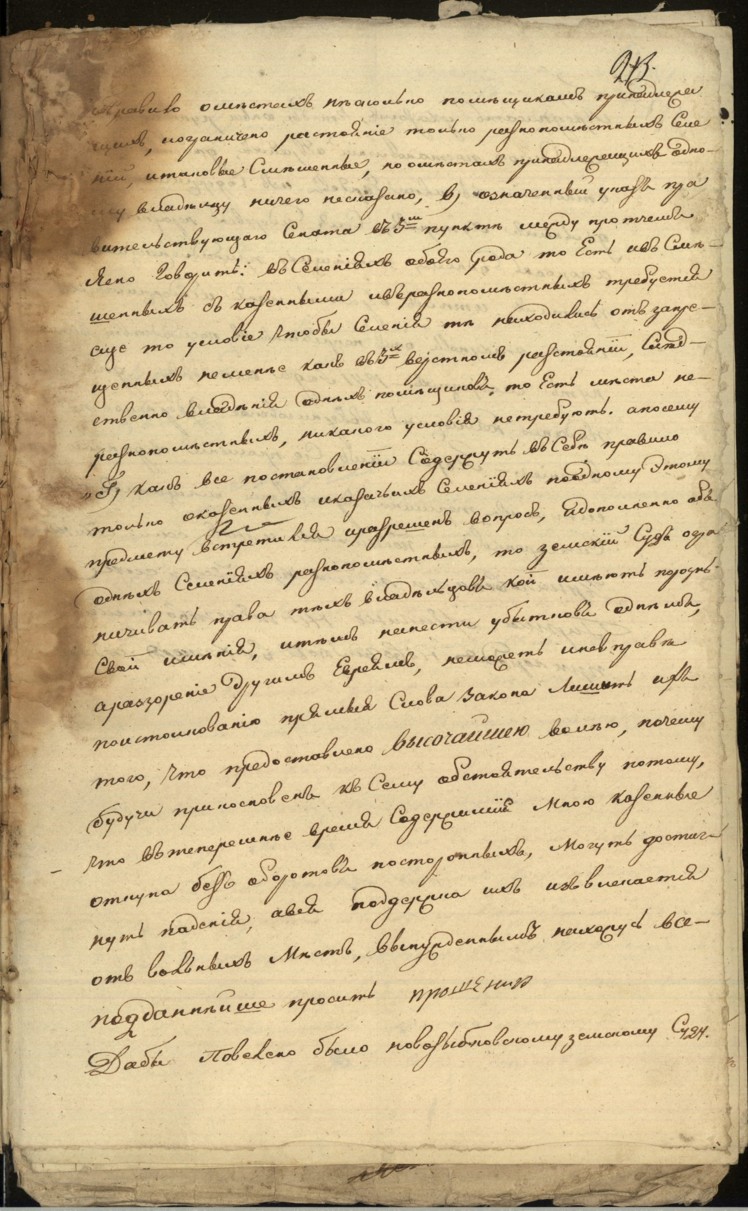 213.
правило о мѣстахъ цѣлостно помѣщикамъ принадлежа
щихъ, и ограничено разстояніе только разнопомѣстныхъ Селе
ній, и таковые Смѣшенные, но о мѣстахъ принадлежащихъ одно-
му владѣльцу ничего несказано, в, означенный указъ пра
вительствующаго Сената въ 5м пунктѣ между протчемъ
Ясно Говоритъ: въ Селеніяхъ обоего рода то Есть изъ Смѣ-
шенныхъ съ казенными изъ разнопомѣстныхъ требуется
еще то условіе чтобы Селеній тѣ находились отъ запре-
щенныхъ неменѣе какъ въ 3х верстномъ разстояніи,
ственно владѣній однихъ помѣщиковъ, то Есть мѣста не-
разнопомѣстныхъ, никакого условія нетребуютъ. а посему
Г, какъ все постановленіи Содержутъ въ Себѣ правило
только о казенныхъ и казачьихъ Селеніяхъ по одному Этому
предмету встретился и разрешенъ вопросъ, и дополненно объ
однихъ Селеніяхъ разнопомѣстныхъ, то земскій Судъ огра
ничивать права тѣхъ владѣльцовъ кой имѣютъ порозн.
Свой имѣній, и тѣмъ нанести убытковъ однимъ,
а раззореніе другимъ Евреямъ, неможетъ и не въ правѣ
по истолкованію прямыя Слова Закона Лишить ихъ
того, что предоставлено высочайшею волею, почему
будучи прикосновенъ къ Сему обстоятельству потому,
что въ теперешнѣе время Содержимій Мною казенные
откупа безъ оборотовъ постороннихъ, могутъ достиг-
нуть паденій, а вся поддержка ихъ извлекается
отъ вольныхъ Мѣстъ, вынужденнымъ нахожусь все-
подданнѣйше просить прошенія
Дабы повелено было новозыбковскому земскому Суду.